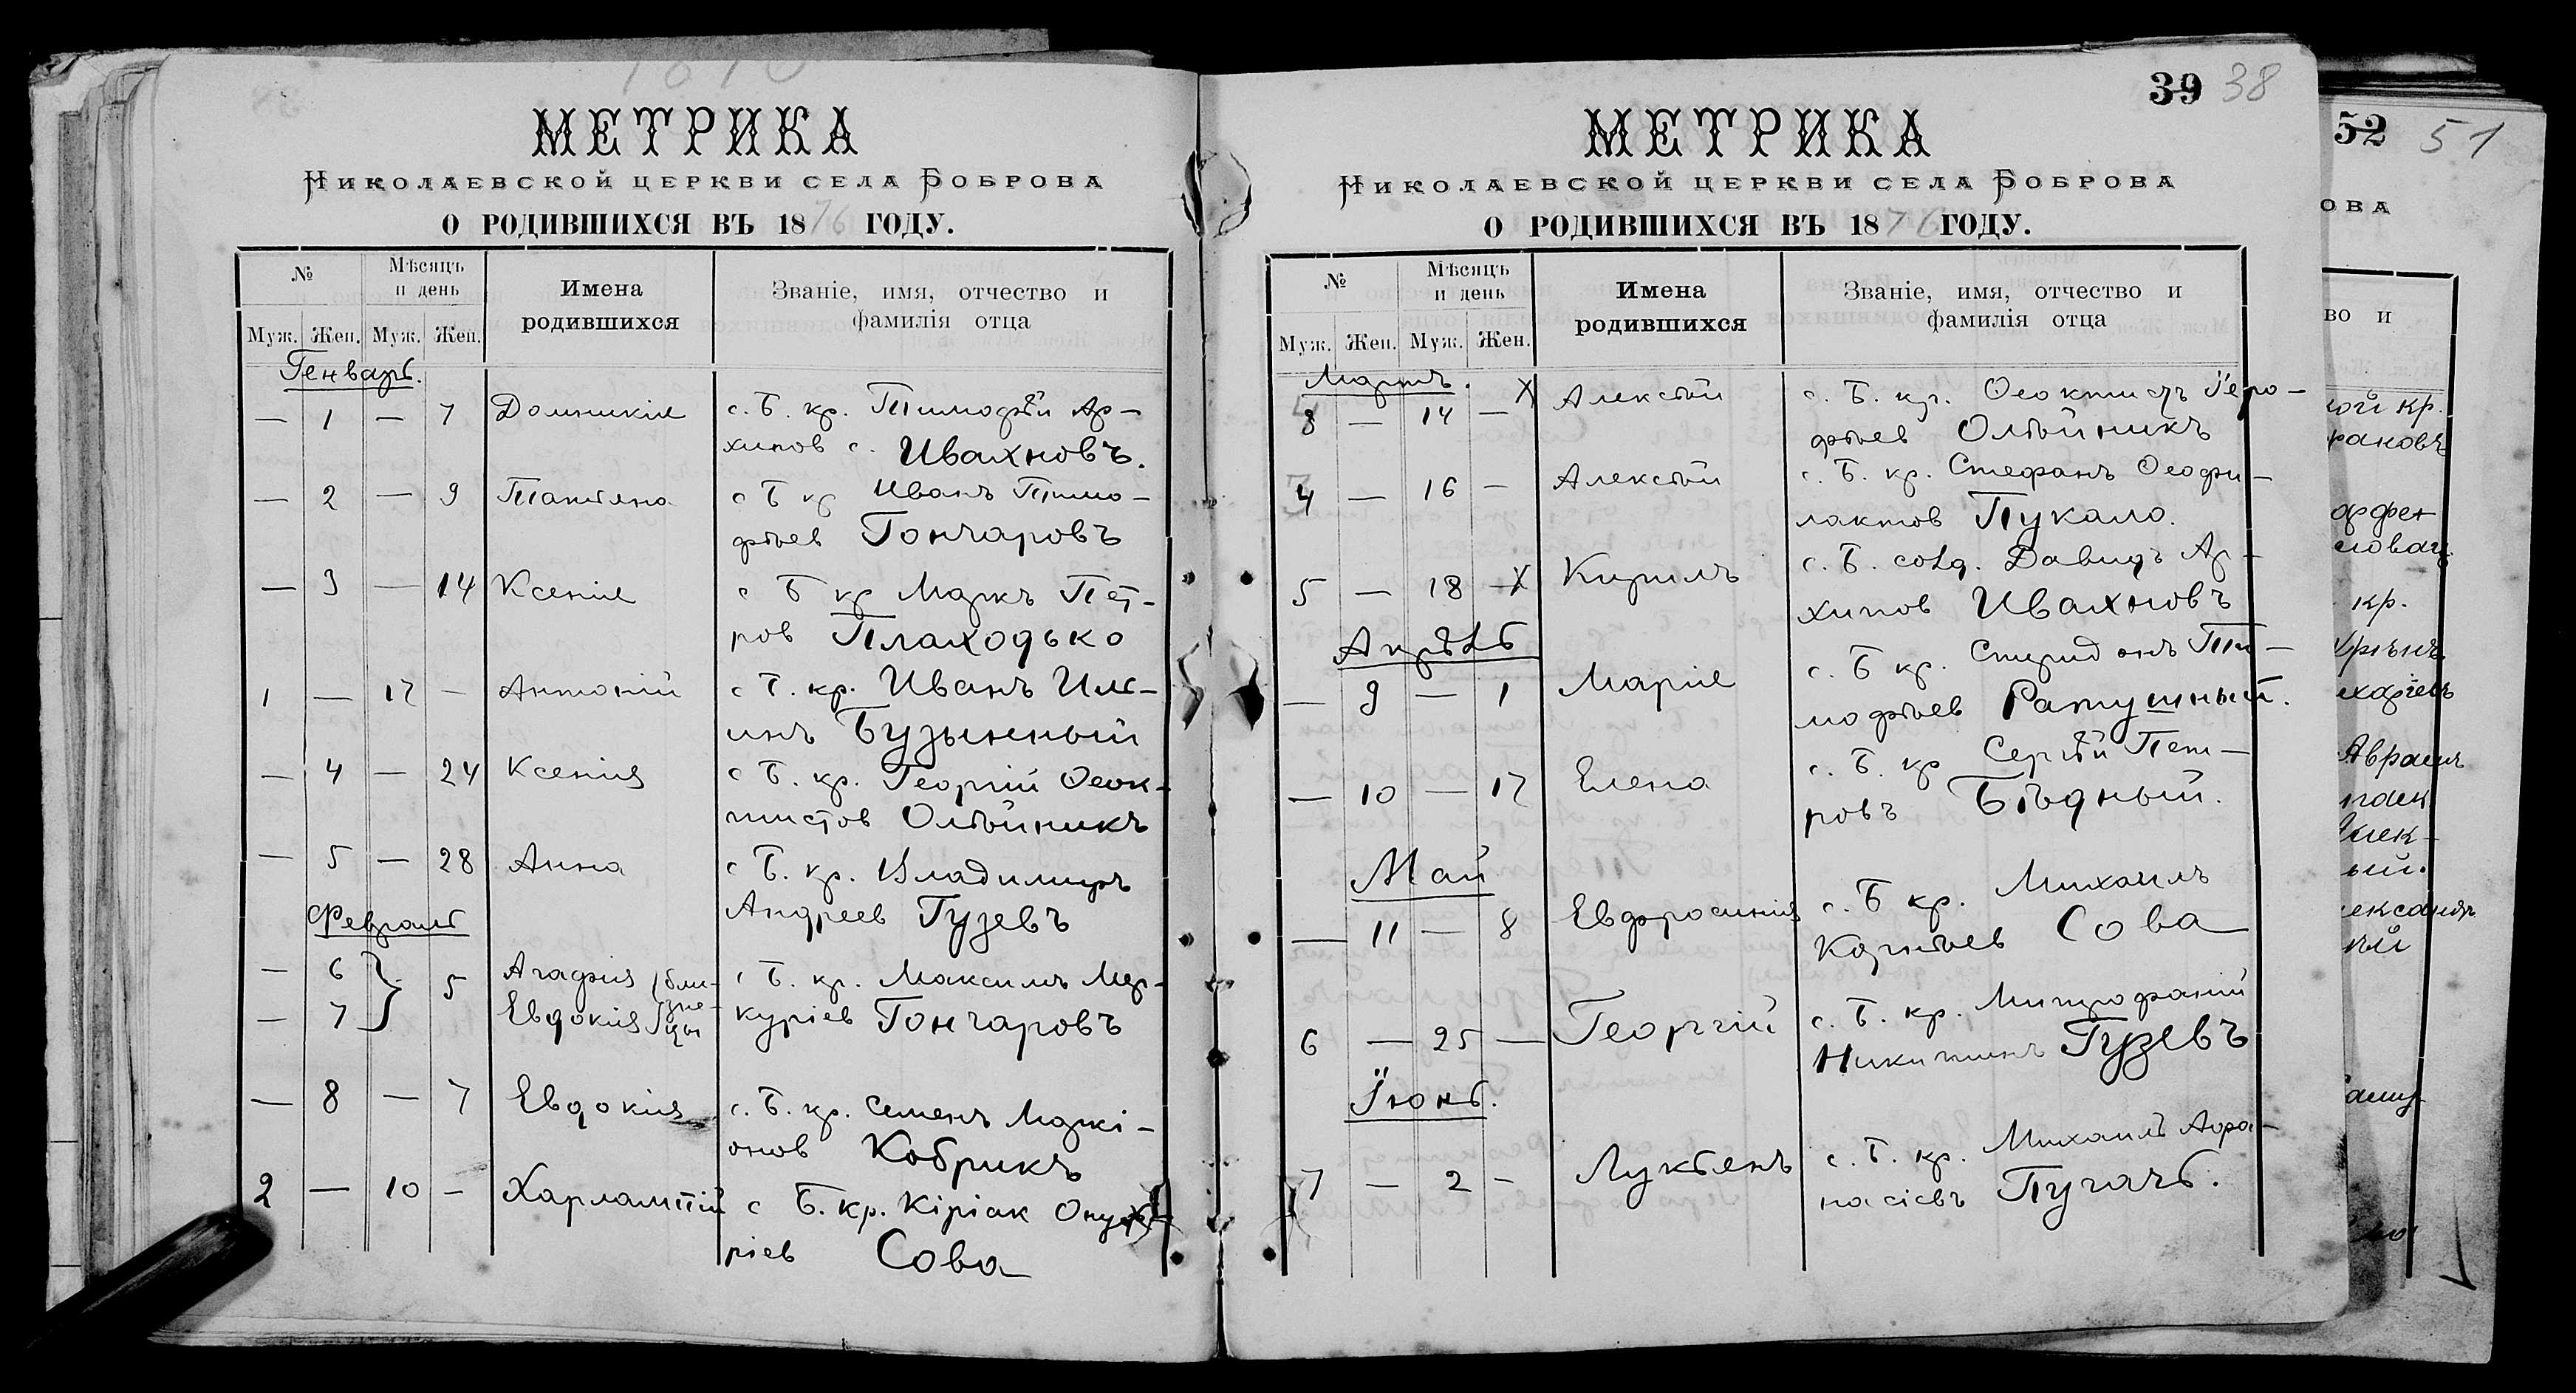 МЕТРИКА
НИКОЛАЕВСКОЙ ЦЕРКВИ СЕЛА БОБРОВА
О РОДИВШИХСЯ ВЪ 1876 ГОДУ.
№ Мѣсяцъ и день Имена родившихся Званіе, имя, отчество и фамилія отца
Муж. Жен. Муж. Жен.
Генварь.
— 1 — 7 Домникія с. Б. кр. Тимофѣй Ар-
хипов с. Ивахновъ.
— 2 — 9 Татіяна с Б кр Иванъ Тимо-
фѣев Гончаровъ
— 3 — 14 Ксенія с Б кр Маркъ Пет-
ров Плаходько
1 — 17 — Антоній с Б. кр. Иванъ Иль-
инъ Бузынный
— 4 — 24 Ксенія с Б. кр. Георгій Ѳеок-
тистов Олѣйникъ
— 5 — 28 Анна с Б. кр. Владимиръ
Андреев Гузевъ
Февраль
— 6 } 5 Агафія (бли- с Б. кр. Максимъ Мер-
— 7 Евдокія зне-цы куріев Гончаровъ
— 8 — 7 Евдокія с. Б. кр. Семенъ Маркі-
онов Кобрикъ
2 — 10 — Харлампій с Б. кр. Кіріак Онуф-
ріев Сова
39 38
МЕТРИКА
НИКОЛАЕВСКОЙ ЦЕРКВИ СЕЛА БОБРОВА
О РОДИВШИХСЯ ВЪ 1876 ГОДУ.
№ Мѣсяцъ и день Имена родившихся Званіе, имя, отчество и фамилія отца
Муж. Жен. Муж. Жен.
Мартъ. X
— 14 — Алексѣй с. Б. кр. Ѳеоктистъ Іеро-
фѣев Олѣйникъ
4 — 16 — Алексѣй с. Б. кр. Стефанъ Ѳеофи-
лактов Пукало.
5 — 18 — X Кирилъ с. Б. солд. Давидъ Ар-
хипов Ивахновъ
Апрѣль
— 9 — 1 Марія с. Б кр. Спиридонъ Ти-
мофѣев Ратушный.
— 10 — 17 Елена с. Б. кр Сергѣй Пет-
ровъ Бѣдный.
Май
— 11 — 8 Евфросинія с. Б кр. Михаилъ
Корнѣев Сова
6 — 25 — Георгій с. Б. кр. Митрофаній
Никитинъ Гузевъ
Іюнь.
7 — 2 — Лукіянъ с. Б. кр. Михаилъ Аѳа-
насіевъ Пугачъ.
52 51
ОВА
во и
кр.